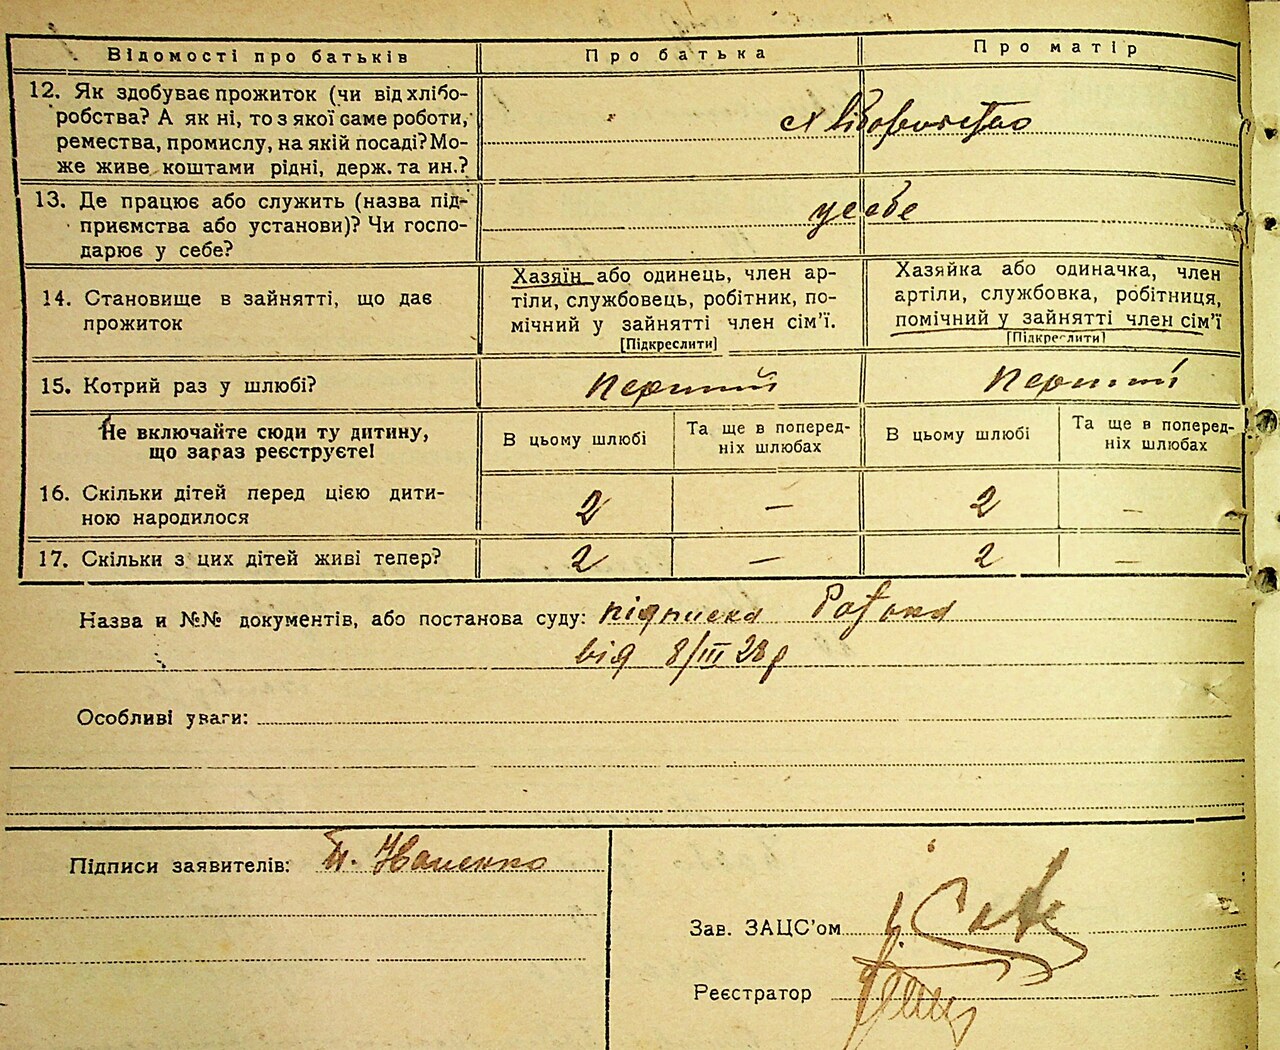 Відомості про батьків
Про батька
Про матір
12. Як здобуває прожиток (чи від хлібо-
робства? А як ні, то з якої саме роботи,
ремества, промислу, на якій посаді? Мо-
же живе коштами рідні, держ. та ин.?
хліборобство
13. Де працює або служить (назва під-
приємства або установи)? Чи госпо-
дарює у себе?
у себе
14. Становище в зайнятті, що дає
прожиток
Хазяїн або одинець, член ар-
тілі, службовець, робітник, по-
мічний у зайнятті член сім'ї.
[Підкреслити]
Хазяйка або одиначка, член
артіли, службовка, робітниця,
помічний у зайнятті член сім'ї
[Підкреслити]
15. Котрий раз у шлюбі?
перший
перший
Не включайте сюди ту дитину,
що зараз реєструєте!
В цьому шлюбі
Та ще в поперед-
ніх шлюбах
В цьому шлюбі
Та ще в поперед-
ніх шлюбах
16. Скільки дітей перед цією дити-
ною народилося
2 — 2 —
17. Скільки з цих дітей живі тепер?
2 — 2 —
Назва и №№ документів, або постанова суду: підписка
від 8/III 28 р
Особливі уваги:
Підписи заявителів:
Зав. ЗАЦС'ом
Реєстратор